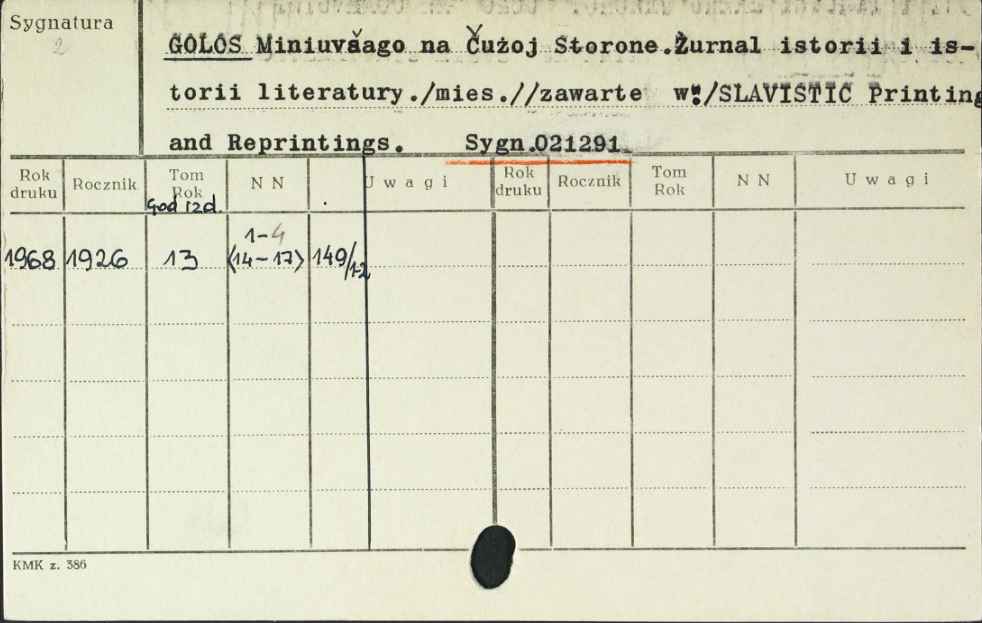 Sygnatura
2
GOLOS Miniuvăago na Čužoj Storone.Žurnal istorii i is-
torii literatury./mies.//zawarte w:/SLAVISTIC Printing
and Reprintings. Sygn.021291
Rok druku Rocznik Tom Rok N N U w a g i Rok druku Rocznik Tom Rok N N U w a g i
God izd.
1-4
1968 1926 13 (14-17) 149/1-2
KMK z. 386